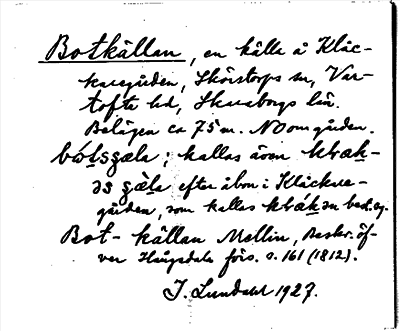 Botkällan, en källa å Klåc-
kuregården, Skörstorps sn, Var-
tofta hd, Skaraborgs län.
Belägen ca 75 m. NO om gården.
kallas även
efter åbon i Klåckure-
gården, som kallas best. eg.
Bot-källan Mellin, Beskr. öf-
ver Haqvadals förs. s. 161 (1812).
J. Lundahl 1927.